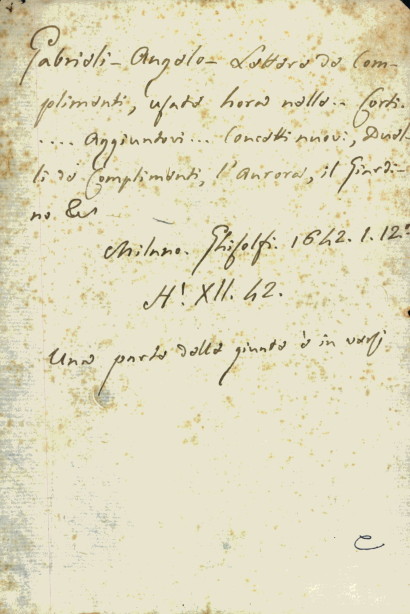 Gabrieli - Angelo - Lettere di Com-
plimenti, usate hora nelle .. Corti.
.... Aggiuntovi ... Concetti nuovi, Duel-
li di Complimenti, l'Aurora, il Giardi-
no &c
Milano. Ghisolfi. 1642. 1. 12°
H! XII. 42.
Una parte della giunta è in versi